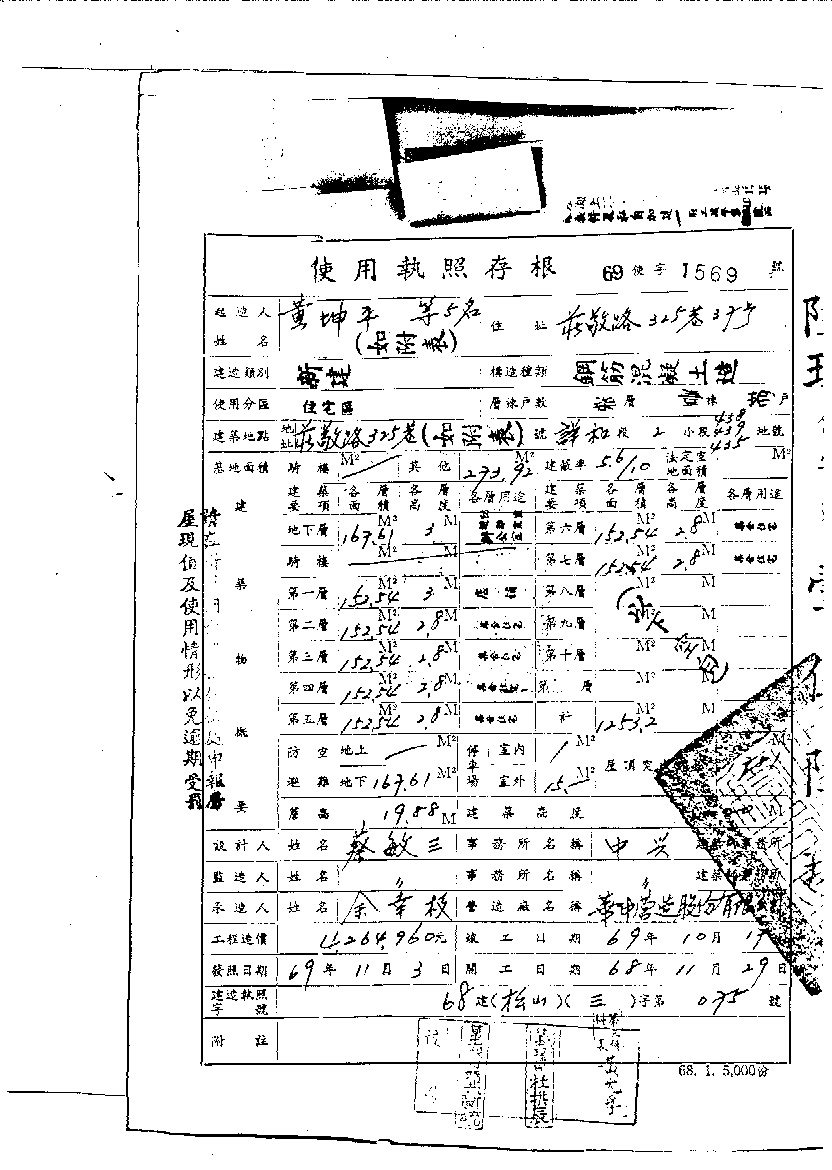 使用執照存根 69使字1569號
起造人姓名 黃坤平 等5名(如附表) 住址 莊敬路325巷37号
建造類別 新建 構造種類 鋼筋混凝土造
使用分區 住宅區 層棟戶數 柒層 壹棟 拾戶
建築地點 地址 莊敬路325巷(如附表)號 詳和段 2 小段 438 439 435 地號
基地面積 騎樓 M² 其他 273.92 M² 建蔽率 5.6/10 法定空地面積 M²
建築要項 各層面積 各層高度 各層用途 建築要項 各層面積 各層高度 各層用途
地下層 167.61 M² 3 M 第六層 152.54 M² 2.8 M 集合住宅
騎樓 M² M 第七層 152.54 M² 2.8 M 集合住宅
第一層 152.54 M² 3 M 店舖 第八層 M² M
第二層 152.54 M² 2.8 M 集合住宅 第九層 M² M
第三層 152.54 M² 2.8 M 集合住宅 第十層 M² M
第四層 152.54 M² 2.8 M 集合住宅 第 層 M² M
第五層 152.54 M² 2.8 M 集合住宅 計 1253.2 M² M
建築物概要
防空 地上 M² 停車場 室內 M²
避難 地下 167.61 M² 室外 15 M² 屋頂突
簷高 19.88 M 建築高度 M
設計人 姓名 蔡敏三 事務所名稱 中兴 建築師事務所
監造人 姓名 〃 事務所名稱 〃 建築師事務所
承造人 姓名 余幸枝 營造廠名稱 華中營造股份有限公司
工程造價 4,264,960元 竣工日期 69年10月17日
發照日期 69年11月3日 開工日期 68年11月29日
建造執照字號 68建(松山)(三)字第075號
附註
68. 1. 5,000份
屋現值及使用情形以免逾期受罰